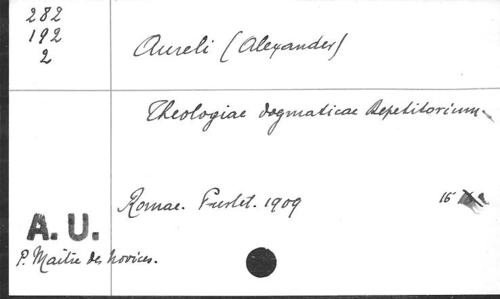 282
192
2
Aureli (Alexander)
Theologiae dogmaticae Repetitorium.
Romae. Pustet. 1909
16
A. U.
P. Maître des novices.